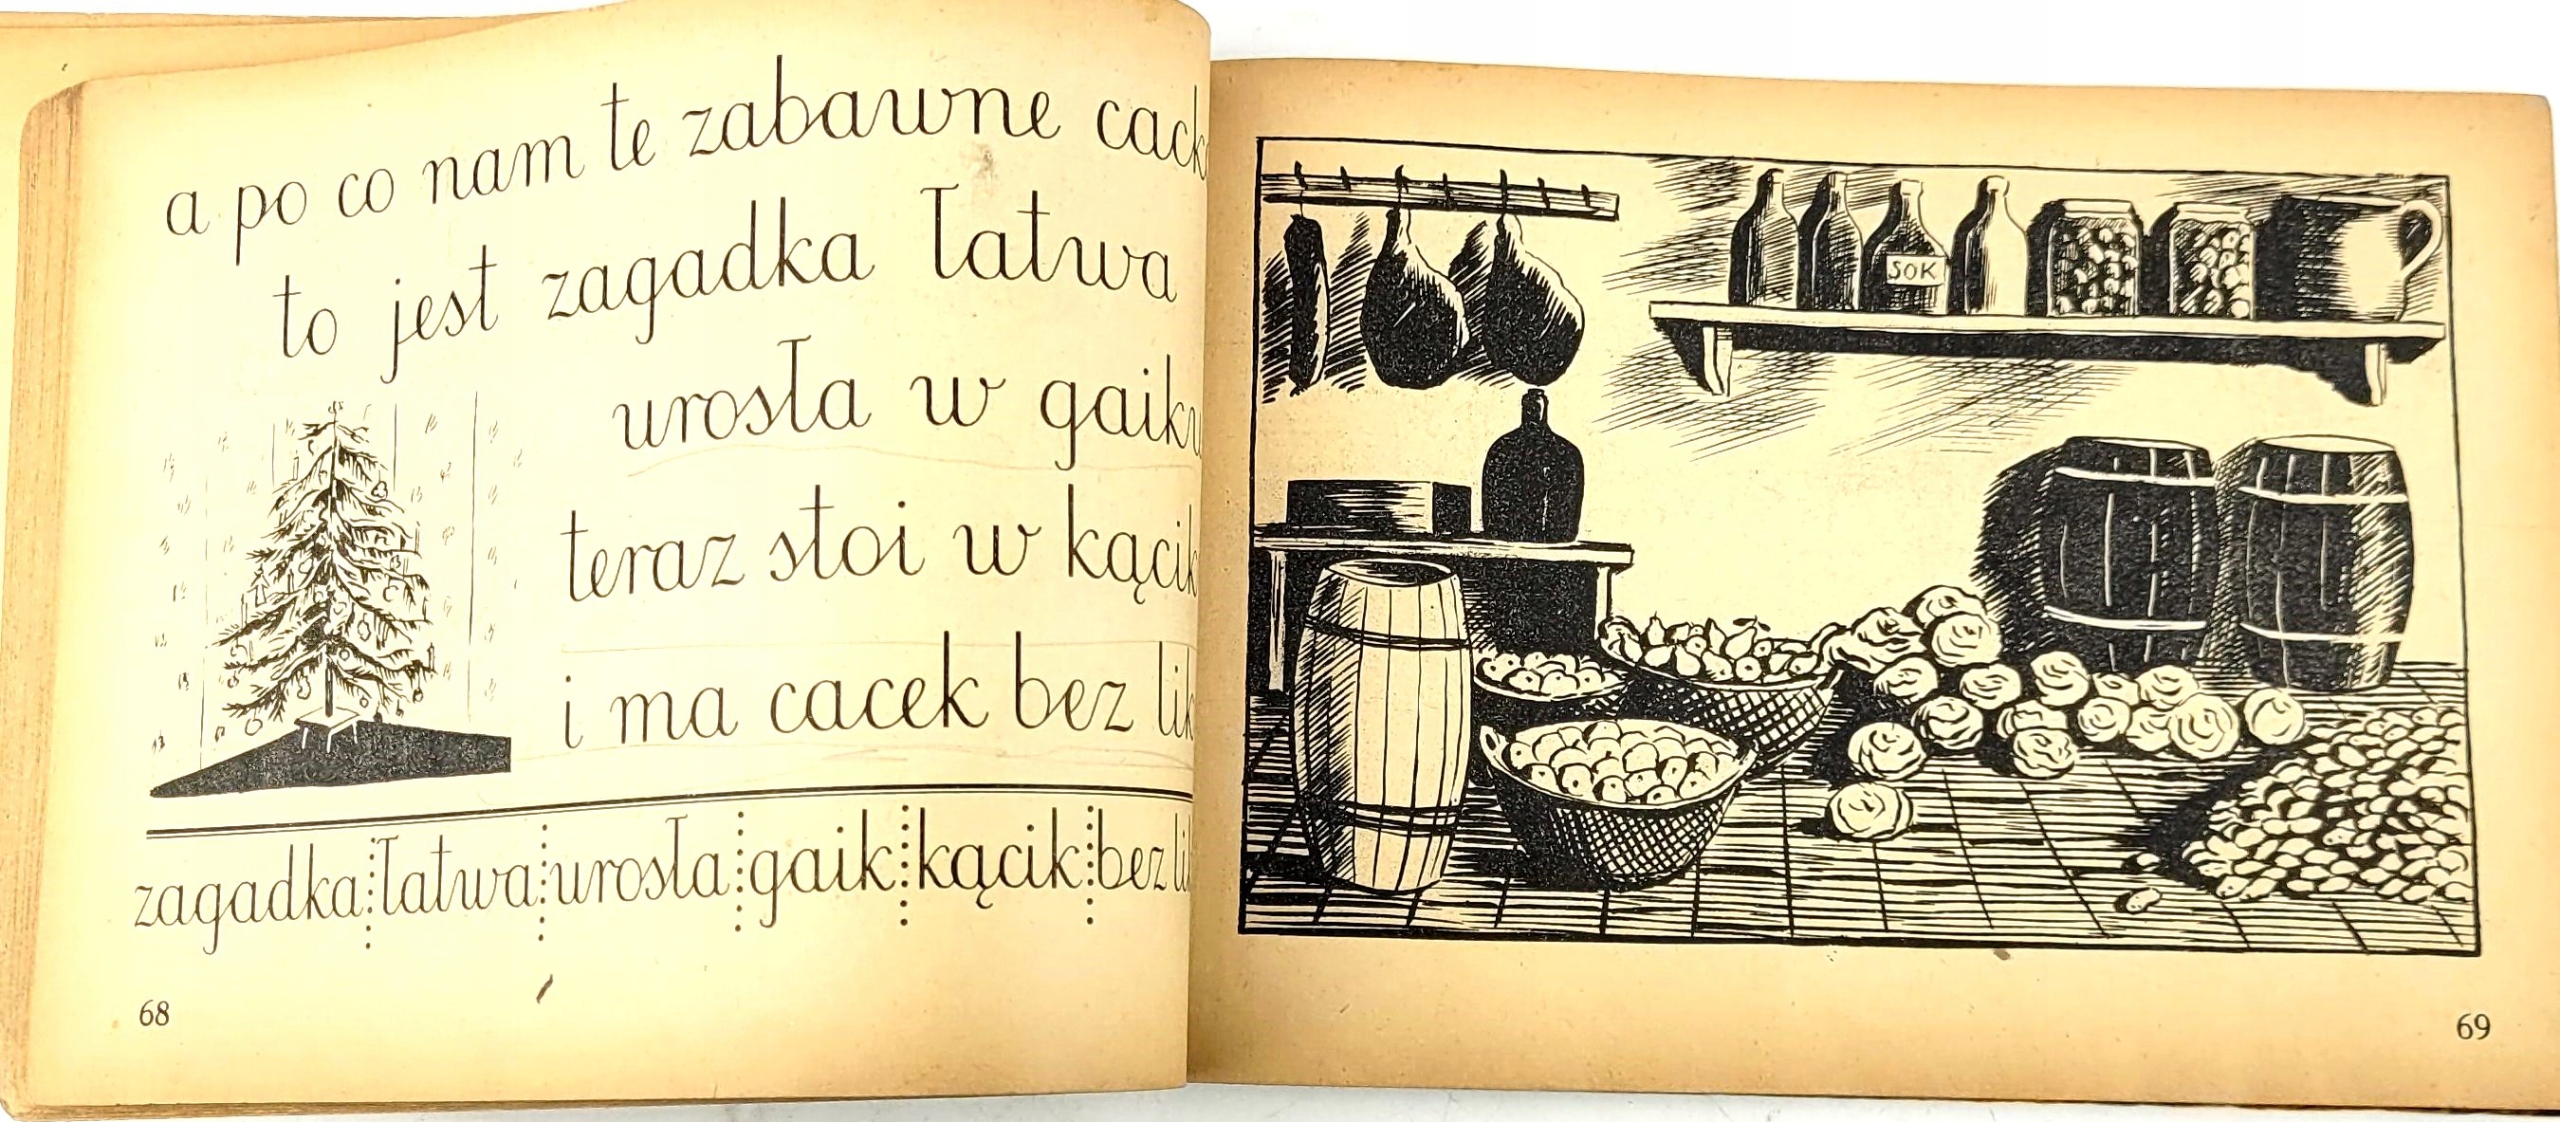 a po co nam te zabawne cack
to jest zagadka łatwa
urosła w gaiku
teraz stoi w kącik
i ma cacek bez lik
zagadka łatwa urosła gaik kącik bez li
68
SOK
69